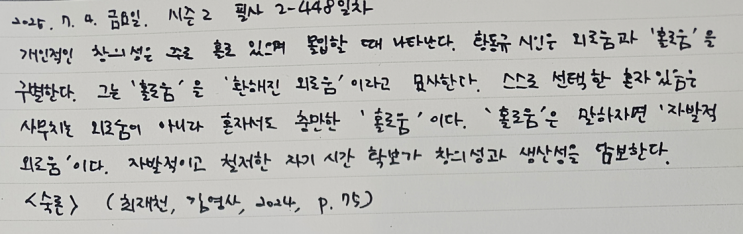 2025. 7. 4. 금요일. 시즌 2 필사 2-448일차
개인적인 창의성은 주로 홀로 있으며 몰입할 때 나타난다. 황동규 시인은 외로움과 '홀로움'을
구별한다. 그는 '홀로움'을 '환해진 외로움'이라고 묘사한다. 스스로 선택한 혼자 있음은
사무치는 외로움이 아니라 혼자서도 충만한 '홀로움'이다. '홀로움'은 말하자면 '자발적
외로움'이다. 자발적이고 철저한 자기 시간 확보가 창의성과 생산성을 담보한다.
<숙론> (최재천, 김영사, 2024, p. 75)